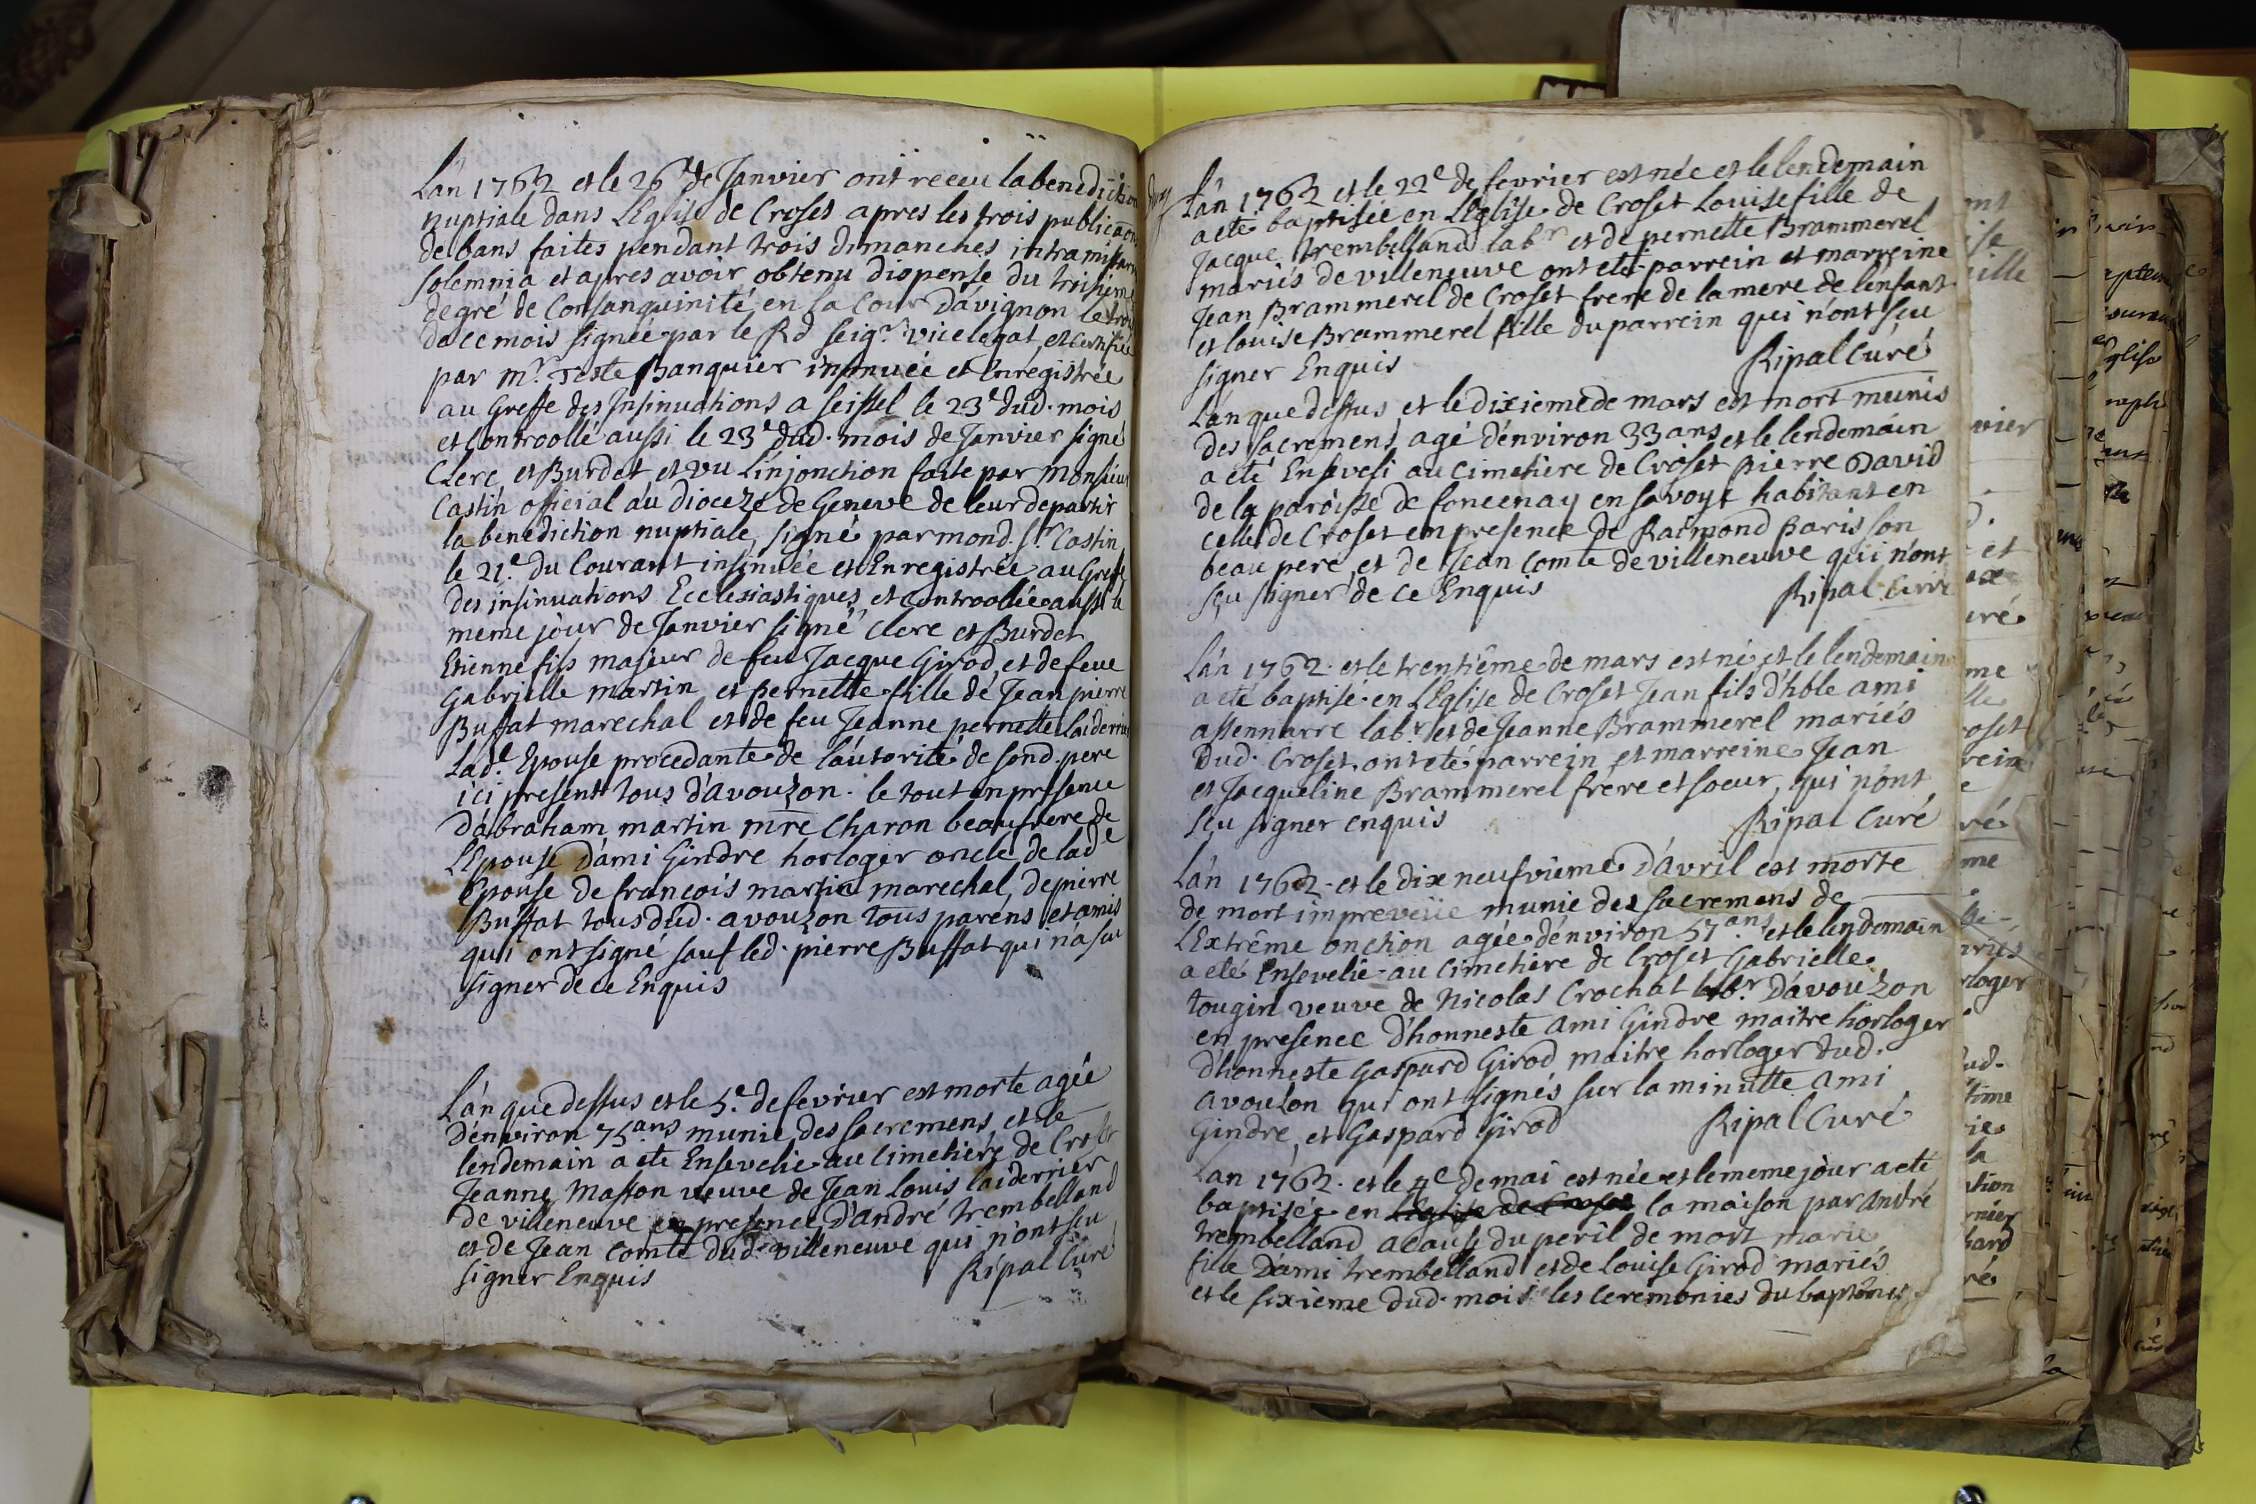 L'an 1762 et le 26e de Janvier ont receu la benediction
nuptiale dans L'Eglise de Croset apres les trois publications
de bans faites pendant trois dimanches intra missarum
solemnia et apres avoir obtenu dispense du troisieme
degré de Consanguinité en la Cour d'avignon le trois
de ce mois signée par le Rd seigr. vicelegat, et certifiée
par mr. Teste Banquier insinuée et Enregistrée
au Greffe des Insinuations a seissel le 23e dud. mois
et Controollé aussi le 23e dud. mois de Janvier signé
Clerc et Burdet et vu L'injonction faite par Monsieur
Castin official au Dioceze de Geneve de leur departir
la benediction nuptiale, signé par mond. sr. Castin
le 21e. du Courant insinuée et Enregistrée au Greffe
des insinuations Ecclesiastiques et Controollée aussi le
meme jour de Janvier signé Clerc et Burdet
Etienne fils majeur de feu Jacque Girod, et de feue
Gabrielle martin et pernette fille de Jean pierre
Buffat marechal et de feu Jeanne pernette Laiderrier
Lade. Epouse procedante de l'autorité de sond. pere
ici présent tous d'avouzon. le tout en presence
d'abraham martin mre Charon beaufrere de
L'Epouse d'ami Gindre horloger oncle de lade
Epouse de francois martin marechal, de pierre
Buffat tous dud. avouzon tous parens et amis
qui ont signé sauf led. pierre Buffat qui n'a scu
signer de ce Enquis
L'an que dessus et le 5e. de fevrier est morte agée
d'environ 75 ans munie des sacremens, et le
lendemain a eté Ensevelie au Cimetiere de Croset
Jeanne Masson veuve de Jean Louis laiderrier
de villeneuve en presence d'andré trembelland
et de Jean Comte dud. villeneuve qui n'ont seu
signer Enquis Ripal Curé
L'an 1762 et le 22e de fevrier est née et le lendemain
a eté baptisée en L'Eglise de Croset Louise fille de
Jacque trembelland labr. et de pernette Brammerel
mariés de villeneuve ont eté parrein et marreine
Jean Brammerel de Croset frere de la mere de l'enfant
et louise Brammerel fille du parrein qui n'ont seu
signer Enquis Ripal Curé
L'an que dessus et le dixieme de mars est mort munis
des sacremens agé d'environ 33 ans et le lendemain
a eté Enseveli au cimetiere de Croset pierre David
de la paroisse de foncenay en savoye habitant en
celle de Croset en presence de Raimond paris son
beau pere et de Jean Comte de villeneuve qui n'ont
sçu signer de ce Enquis Ripal curé
L'an 1762. et le trentième de mars est né, et le lendemain
a eté baptisé en L'Eglise de Croset Jean fils d'hble ami
assennarre labr. et de Jeanne Brammerel mariés
Dud. Croset, ont eté parrein et marreine Jean
et Jacqueline Brammerel frere et soeur, qui n'ont
sçu signer enquis Ripal Curé
L'an 1762. et le dix neufvieme d'avril est morte
de mort impreveüe munie des sacremens de
L'Extrême onction agée d'environ 57 ans et le lendemain
a eté Ensevelie au Cimetiere de Croset Gabrielle
tougin veuve de Nicolas Crochat labr. d'avouzon
en presence d'honneste ami Gindre maitre horloger
d'honneste Gaspard Girod maitre horloger dud.
avouzon qui ont signés sur la minutte Ami
Gindre et Gaspard Girod Ripal Curé
L'an 1762. et le 4e de mai est née et le meme jour a eté
baptisée en l'Eglise de Croset la maison par André
trembelland a cause du peril de mort marie
fille D'ami trembelland et de louise Girod mariés
et le sixieme dud. mois les ceremonies du baptême